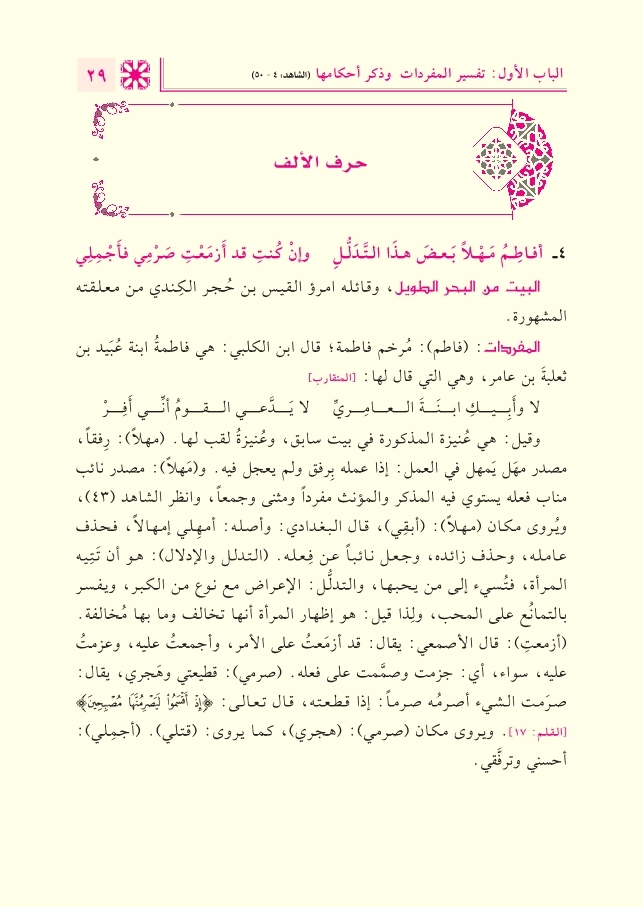 الباب الأول: تفسير المفردات وذكر أحكامها (الشاهد: ٤ - ٥٠)
٢٩
حرف الألف
٤ـ أفاطِمُ مَهْلاً بَعضَ هذَا التَّدَلُّلِ وإنْ كُنتِ قد أَزمَعْتِ صَرْمِي فأَجْمِلِي
البيت من البحر الطويل، وقائله امرؤ القيس بن حُجر الكِندي من معلقته
المشهورة.
المفردات: (فاطم): مُرخم فاطمة؛ قال ابن الكلبي: هي فاطمةُ ابنة عُبَيد بن
ثعلبةَ بن عامر، وهي التي قال لها: [المتقارب]
لا وأَبِيكِ ابنَةَ العامِريِّ لا يَدَّعي القومُ أنِّي أَفِرْ
وقيل: هي عُنيزة المذكورة في بيت سابق، وعُنيزةُ لقب لها. (مهلاً): رِفقاً،
مصدر مهَل يَمهل في العمل: إذا عمله بِرفق ولم يعجل فيه. و(مَهلاً): مصدر نائب
مناب فعله يستوي فيه المذكر والمؤنث مفرداً ومثنى وجمعاً، وانظر الشاهد (٤٣)،
ويُروى مكان (مهلاً): (أبقِي)، قال البغدادي: وأصله: أمهِلي إمهالاً، فحذف
عامله، وحذف زائده، وجعل نائباً عن فِعله. (التدلل والإدلال): هو أن تَتِيه
المرأة، فتُسيء إلى من يحبها، والتدلُّل: الإعراض مع نوع من الكبر، ويفسر
بالتمانُع على المحب، ولِذا قيل: هو إظهار المرأة أنها تخالف وما بها مُخالفة.
(أزمعتِ): قال الأصمعي: يقال: قد أزمَعتُ على الأمر، وأجمعتُ عليه، وعزمتُ
عليه، سواء، أي: جزمت وصمَّمت على فعله. (صرمي): قطيعتي وهَجري، يقال:
صرَمت الشيء أصرمُه صرماً: إذا قطعته، قال تعالى: ﴿إِذْ أَقْسَمُوا۟ لَيَصْرِمُنَّهَا مُصْبِحِينَ﴾
[القلم: ١٧]. ويروى مكان (صرمي): (هجري)، كما يروى: (قتلي). (أجمِلي):
أحسني وترفَّقي.